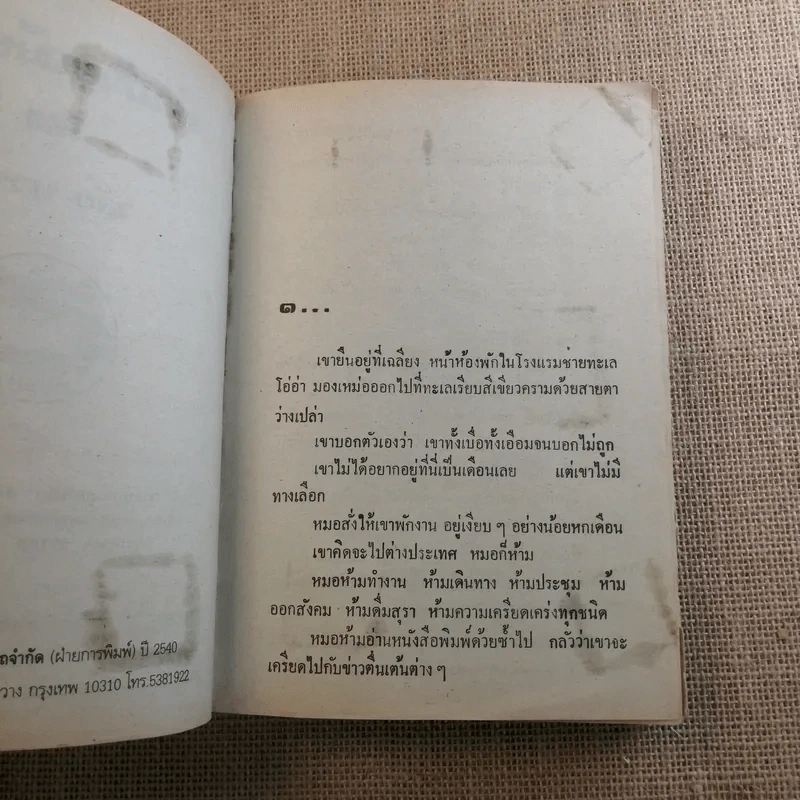 ถจำกัด (ฝ่ายการพิมพ์) ปี 2540
วาง กรุงเทพ 10310 โทร.5381922
๑...
เขายืนอยู่ที่เฉลียง หน้าห้องพักในโรงแรมชายทะเล
โอ่อ่า มองเหม่อออกไปที่ทะเลเรียบสีเขียวครามด้วยสายตา
ว่างเปล่า
เขาบอกตัวเองว่า เขาทั้งเบื่อทั้งเอือมจนบอกไม่ถูก
เขาไม่ได้อยากอยู่ที่นี่เป็นเดือนเลย แต่เขาไม่มี
ทางเลือก
หมอสั่งให้เขาพักงาน อยู่เงียบ ๆ อย่างน้อยหกเดือน
เขาคิดจะไปต่างประเทศ หมอก็ห้าม
หมอห้ามทำงาน ห้ามเดินทาง ห้ามประชุม ห้าม
ออกสังคม ห้ามดื่มสุรา ห้ามความเครียดเคร่งทุกชนิด
หมอห้ามอ่านหนังสือพิมพ์ด้วยซ้ำไป กลัวว่าเขาจะ
เครียดไปกับข่าวตื่นเต้นต่าง ๆ